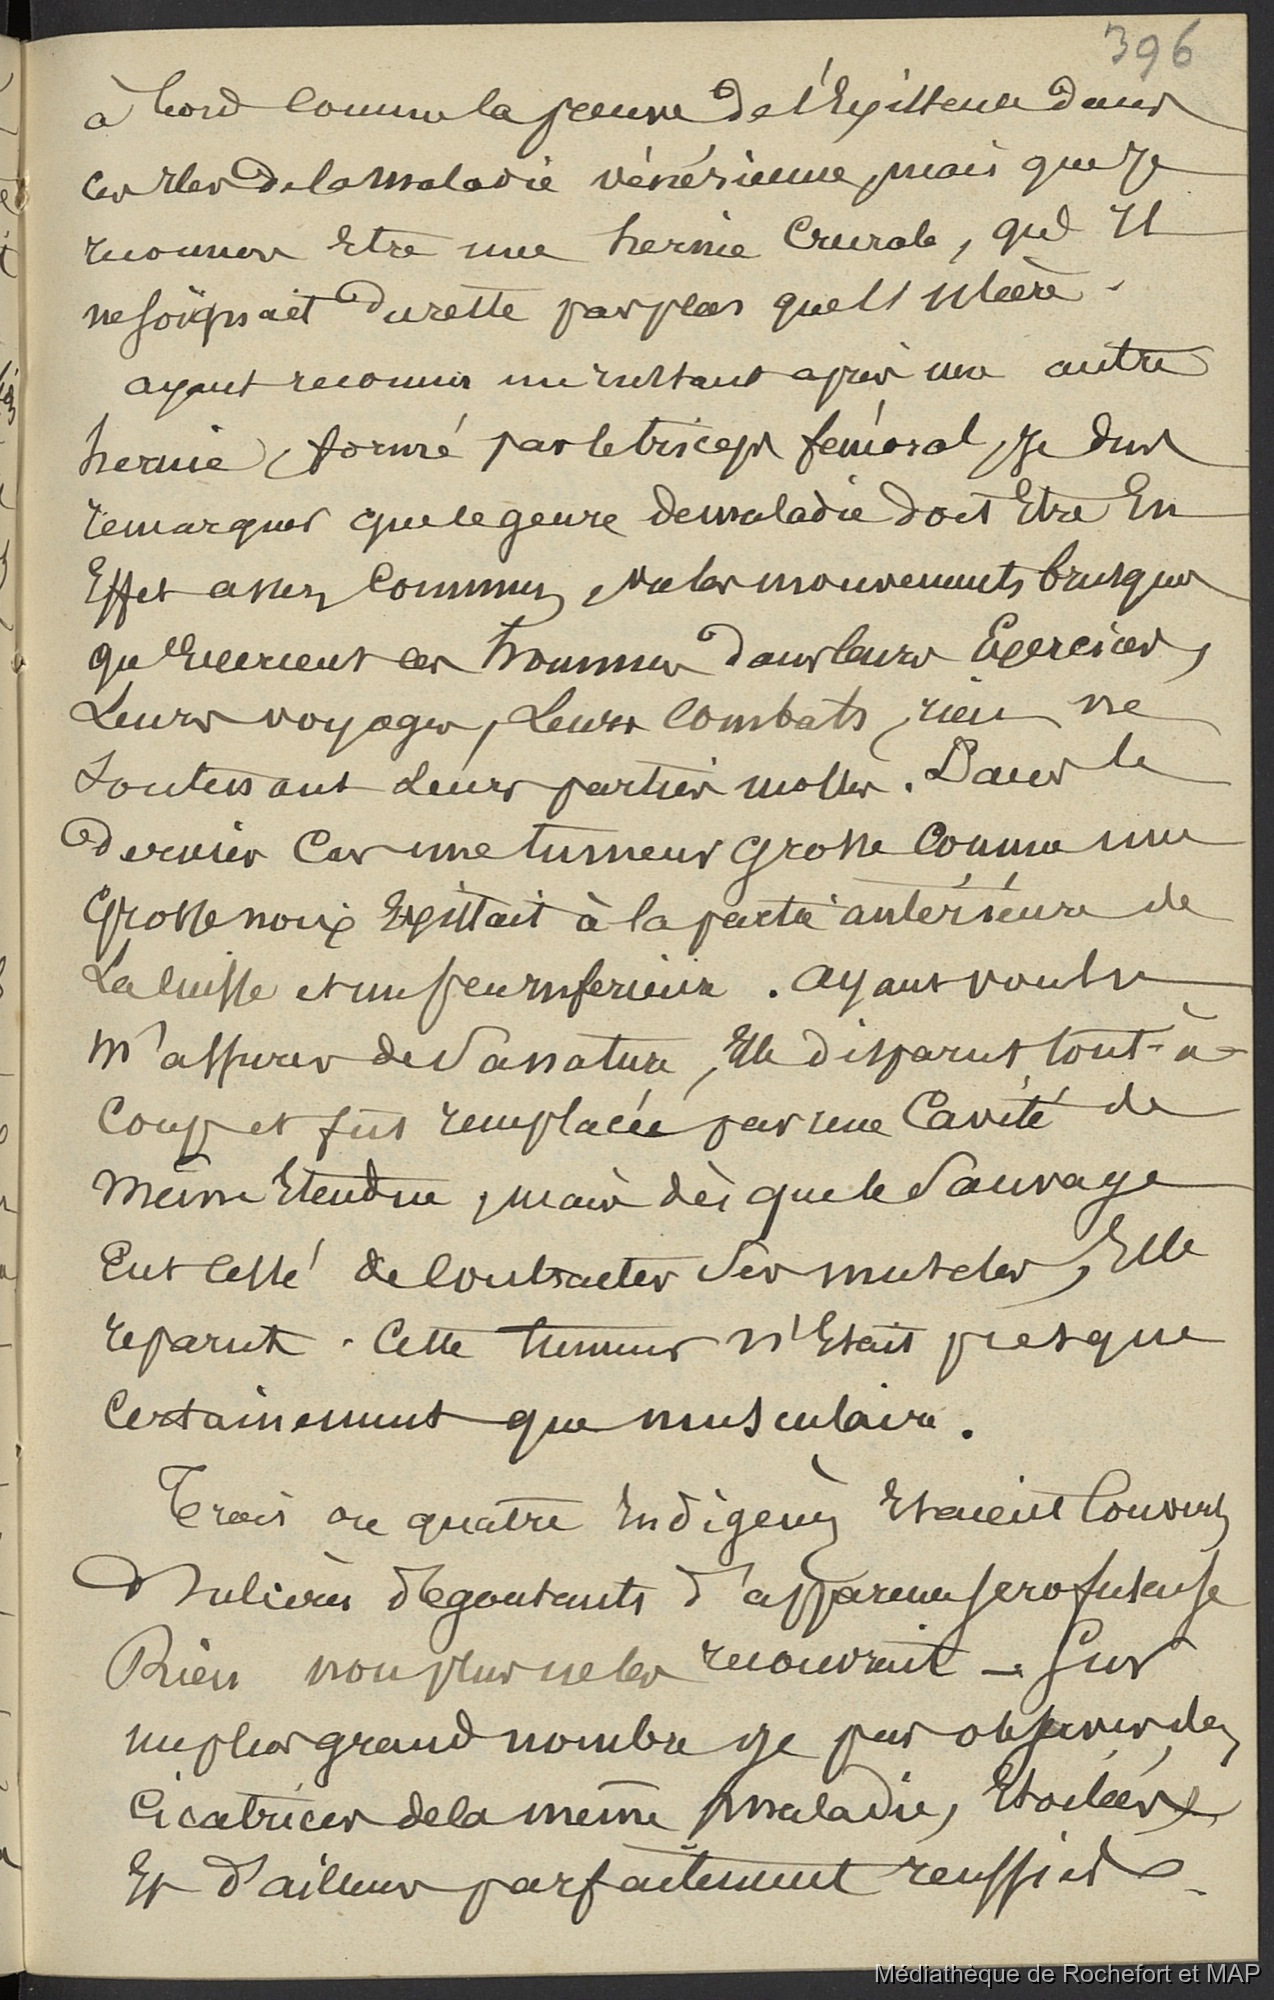 396
à bord comme la preuve de l'Existence dans
ces Iles de la Maladie vénérienne, mais que Je
reconnus Etre une hernie Crurale, qu'Il
ne soignait du reste pas plus que l'Ulcère.
ayant reconnu un instant après une autre
hernie, formé par le triceps femoral, Je dus
remarquer que le genre de maladie doit Etre En
Effet assez Commun, vu les mouvements brusques
qu'Exercent ces hommes dans leurs Exercices,
Leurs voyages, Leurs Combats, rien ne
Soutenant Leurs parties molles. Dans le
dernier Cas une tumeur grosse Comme une
Grosse noix Existait à la partie antérieure de
La Cuisse et un peu inferieure. ayant voulu
m'assurer de Sa nature, Elle disparut tout-à-
Coup et fut remplacée par une Cavité de
même Etendue, mais dès que le Sauvage
Eut Cessé de Contracter Ses muscles, Elle
reparut. Cette tumeur n'Etait presque
Certainement que musculaire.
Trois ou quatre Indigènes Etaient Couverts
d'Ulcères dégoutants d'apparence scrofuleuse
Rien non plus ne les recouvrait _. Sur
un plus grand nombre Je pus observer des
Cicatrices de la même maladie, Etoilées
Et d'ailleurs parfaitement reussies.
Médiathèque de Rochefort et MAP